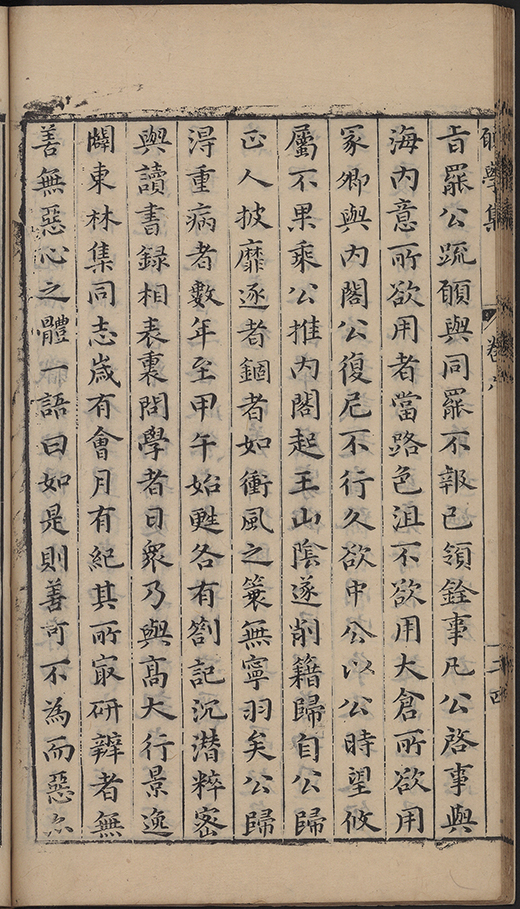 願學集
卷八
二十四
旨罷公疏願與同罷不報已領銓事凡公啓事與
海內意所欲用者當路色沮不欲用大倉所欲用
冢卿與內閣公復尼不行久欲中公以公時望攸
屬不果乘公推內閣起王山陰遂削籍歸自公歸
正人披靡逐者錮者如衝風之籜無寧羽矣公歸
淂重病者數年至甲午始甦各有劄記沉潜粹密
與讀書録相表裏問學者日衆乃與髙大行景逸
闢東林集同志歲有會月有紀其所㝡研辨者無
善無惡心之體一語曰如是則善可不為而惡亦